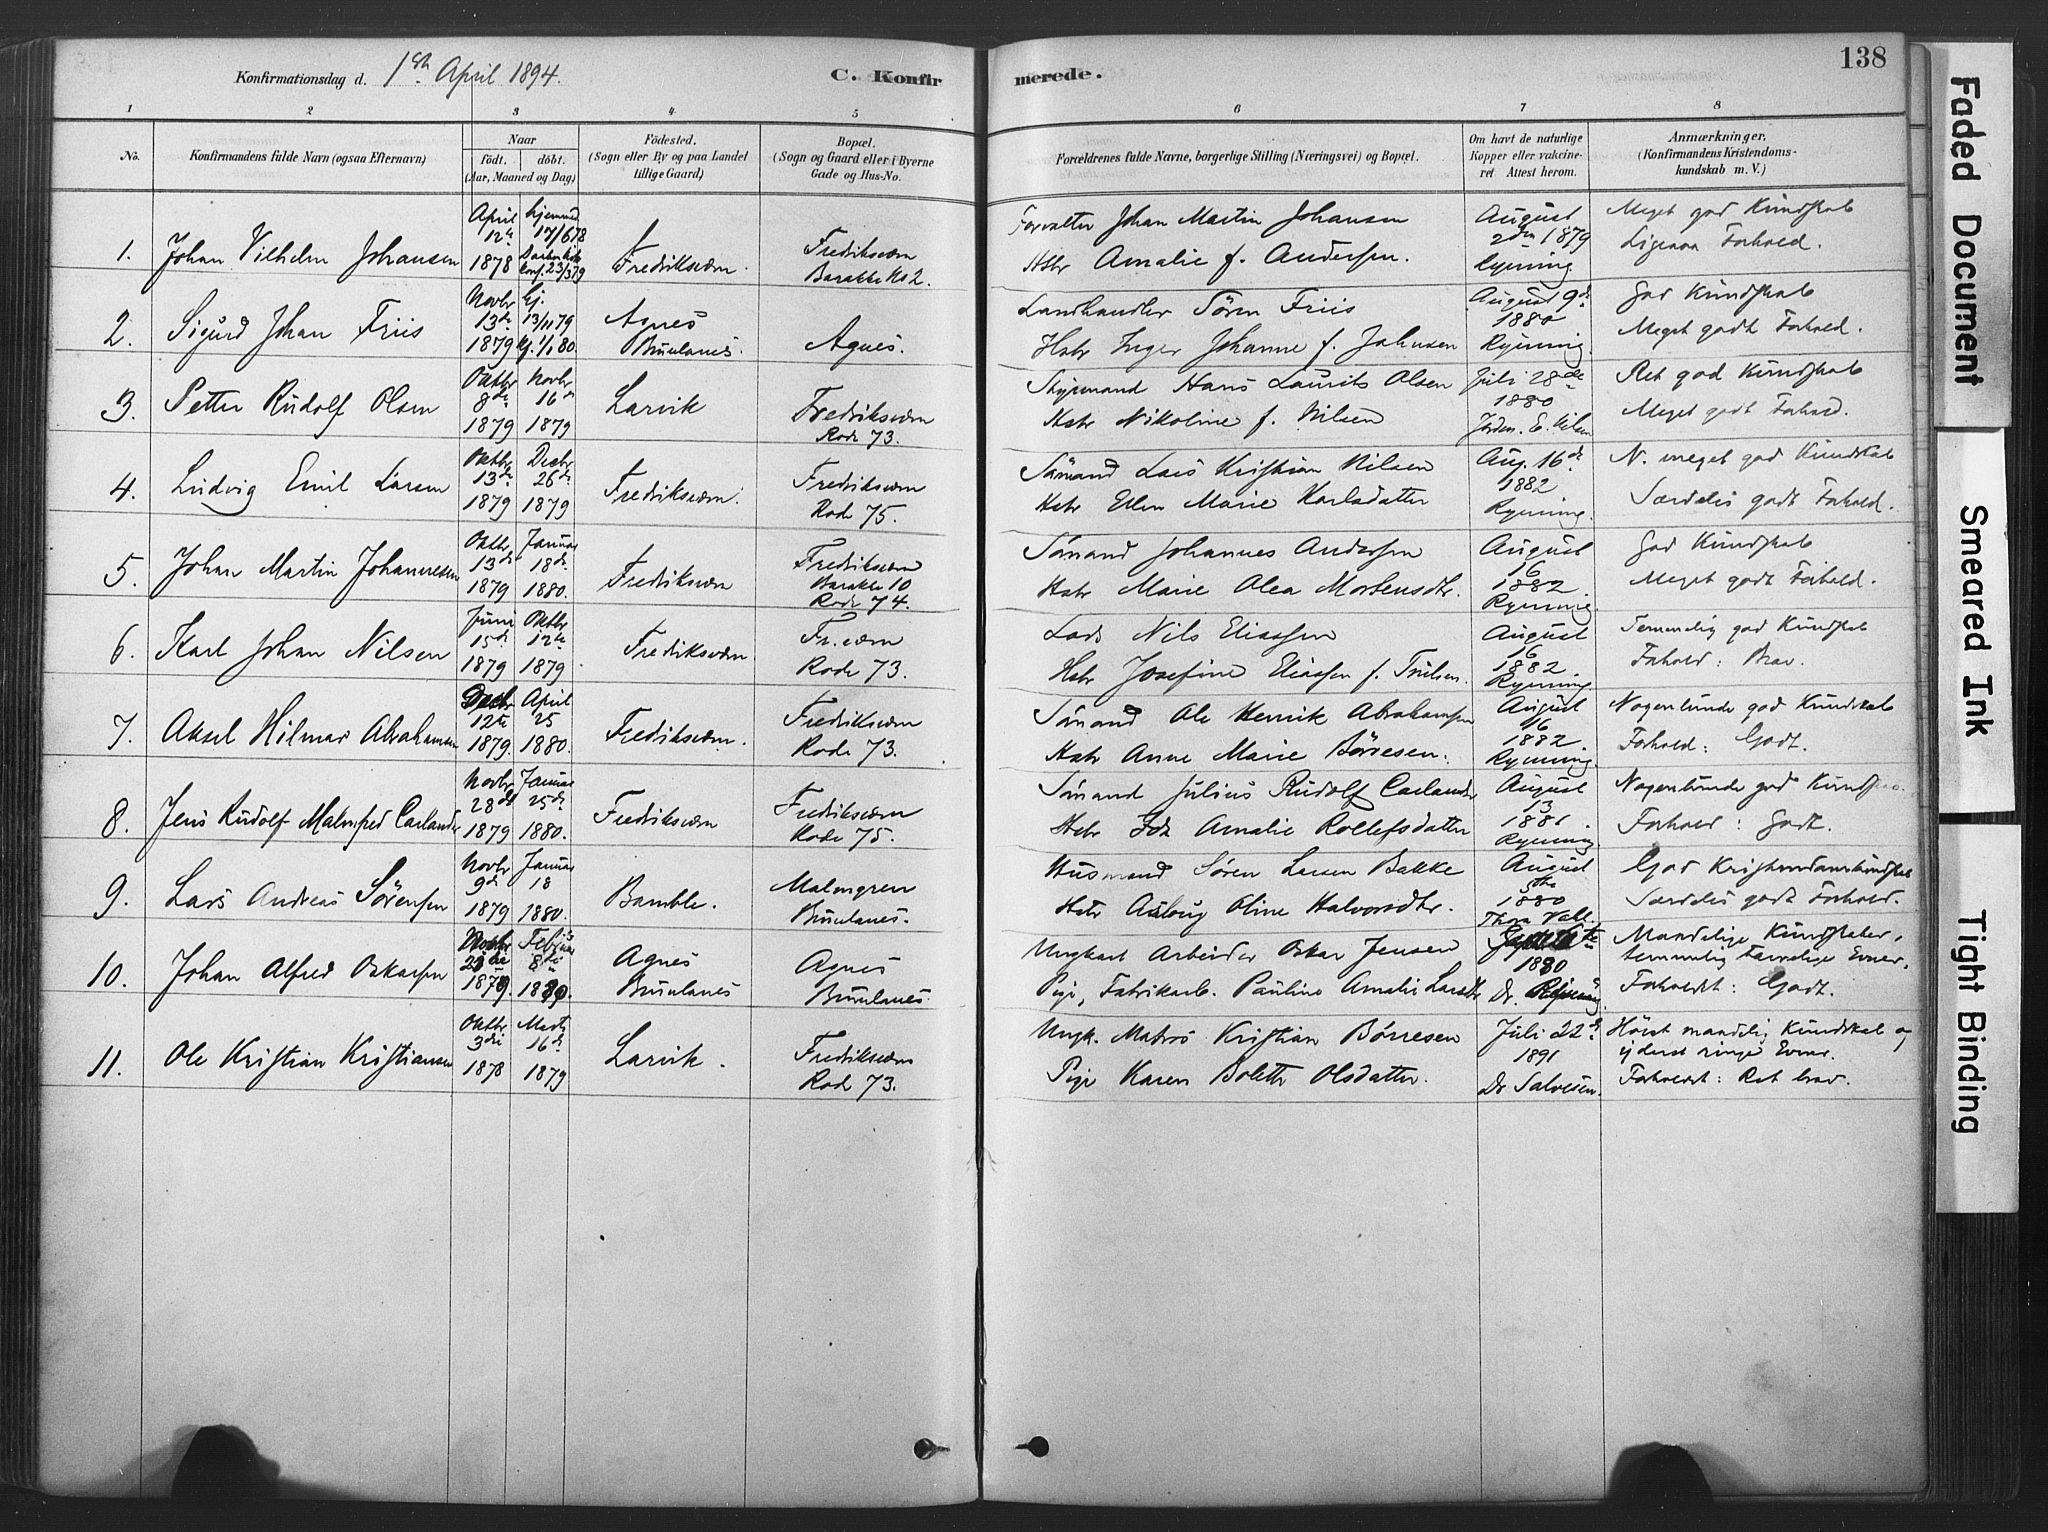 Konfirmationsdag d. 1ste April 1894.
C. Konfirmerede.
138
1 2 3 4 5 6 7 8
No.
Konfirmandens fulde Navn (ogsaa Efternavn)
Naar
Født. døbt.
(Aar, Maaned og Dag)
Fødested.
(Sogn eller By og paa Landet
tillige Gaard)
Bopæl.
(Sogn og Gaard eller i Byerne
Gade og Hus-No.
Forældrenes fulde Navne, borgerlige Stilling (Næringsvei) og Bopæl.
Om havt de naturlige
Kopper eller vakcine-
ret Attest herom.
Anmærkninger.
(Konfirmandens Kristendoms-
kundskab m. V.)
1. Johan Vilhelm Johansen
April 12te 1878
hjemmed. 17/6 78
konf. 23/3 79
Fredriksværn.
Fredriksværn
Barakke No 2.
Forvalter Johan Martin Johansen
Hstr Amalie f. Andersen.
August
2den 1879
Rynning
Meget god Kundskab
Ligesaa Forhold.
2. Sigurd Johan Friis
Novbr 13de 1879
hj. 13/11 79
kj. 1/1 80.
Agnes
Brunlanes.
Agnes.
Landhandler Sören Friis
Hstr Inger Johanne f. Johnsen
August 9de
1880
Rynning.
God Kundskab
Meget godt Forhold.
3. Petter Rudolf Olsen
Oktbr 8de 1879
Novbr 16de 1879
Larvik
Fredriksværn
Rode 73.
Styrmand Hans Laurits Olsen
Hstr Nikoline f. Nilsen
Juli 28de
1880
Jordm. E. Nilsen
Ret god Kundskab
Meget godt Forhold.
4. Ludvig Emil Larsen
Oktbr 13de 1879
Decbr 26de 1879
Fredriksværn.
Fredriksværn
Rode 75.
Sömand Lars Kristian Nilsen
Hstr Ellen Marie Karlsdatter
Aug. 16de
1882
Rynning.
N. meget god Kundskab
Særdeles godt Forhold.
5. Johan Martin Johannesen
Oktbr 13de 1879
Januar 18de 1880.
Fredriksværn
Fredriksværn
Barakke 10
Rode 74.
Sömand Johannes Andersen
Hstr Marie Olea Mortensdtr.
August
16
1882.
Rynning.
God Kundskab
Meget godt Forhold.
6. Karl Johan Nilsen
Juni 15de 1879
Oktbr 12te 1879
Fredriksværn
Fr.værn
Rode 73.
Lods Nils Eliassen
Hstr Josefine Eliassen f.
August
16
1882
Rynning.
Temmelig god Kundskab
Forhold: Brav.
7. Aksel Hilmar Abrahamsen
Decbr 12te 1879
April 25 1880.
Fredriksværn.
Fredriksværn
Rode 73.
Sömand Ole Henrik Abrahamsen
Hstr Anne Marie Börresen.
August
16
1882
Rynning.
Nogenlunde god Kundskab
Forhold: Godt.
8. Jens Rudolf Malmfred Carlander
Novbr 28de 1879
Januar 25de 1880.
Fredriksværn
Fredriksværn
Rode 75.
Sömand Julius Rudolf Carlander
Hstr Ida Amalie Rollefsdatter
August
13
1881
Rynning.
Nogenlunde god Kundskab.
Forhold: Godt.
9. Lars Andreas Sörensen
Novbr 9de 1879
Januar 18 1880.
Bamble.
Malmgren
Brunlanes.
Husmand Sören Larsen Bakke
Hstr Aslaug Oline Halvorsdtr.
August
5te
1880
Thora Vall.
God Kristendomskundskab
Særdeles godt Forhold.
10. Johan Alfred Oskarsen
Novbr 1879.
Februar 8de 1880.
Agnes
Brunlanes
Agnes
Brunlanes.
Ungkarl Arbeider Oskar Jensen
Pige, Fabrikarb. Pauline Amalie Larsdtr
1880
Dr. Rynning.
Mandelige Kundskaber,
temmelig Evner.
Forholdet: Godt.
11. Ole Kristian Kristiansen
Oktbr 3die 1878
Marts 16de 1879
Larvik.
Fredriksværn
Rode 73.
Ungk. Matros Kristian Börresen
Pige Karen Bolette Olsdatter.
Juli 22de
1891
Dr Salvesen.
Höist mandelig Kundskab og
yderst ringe Evner.
Forholdet: Ret brav.
Faded Document
Smeared Ink
Tight Binding